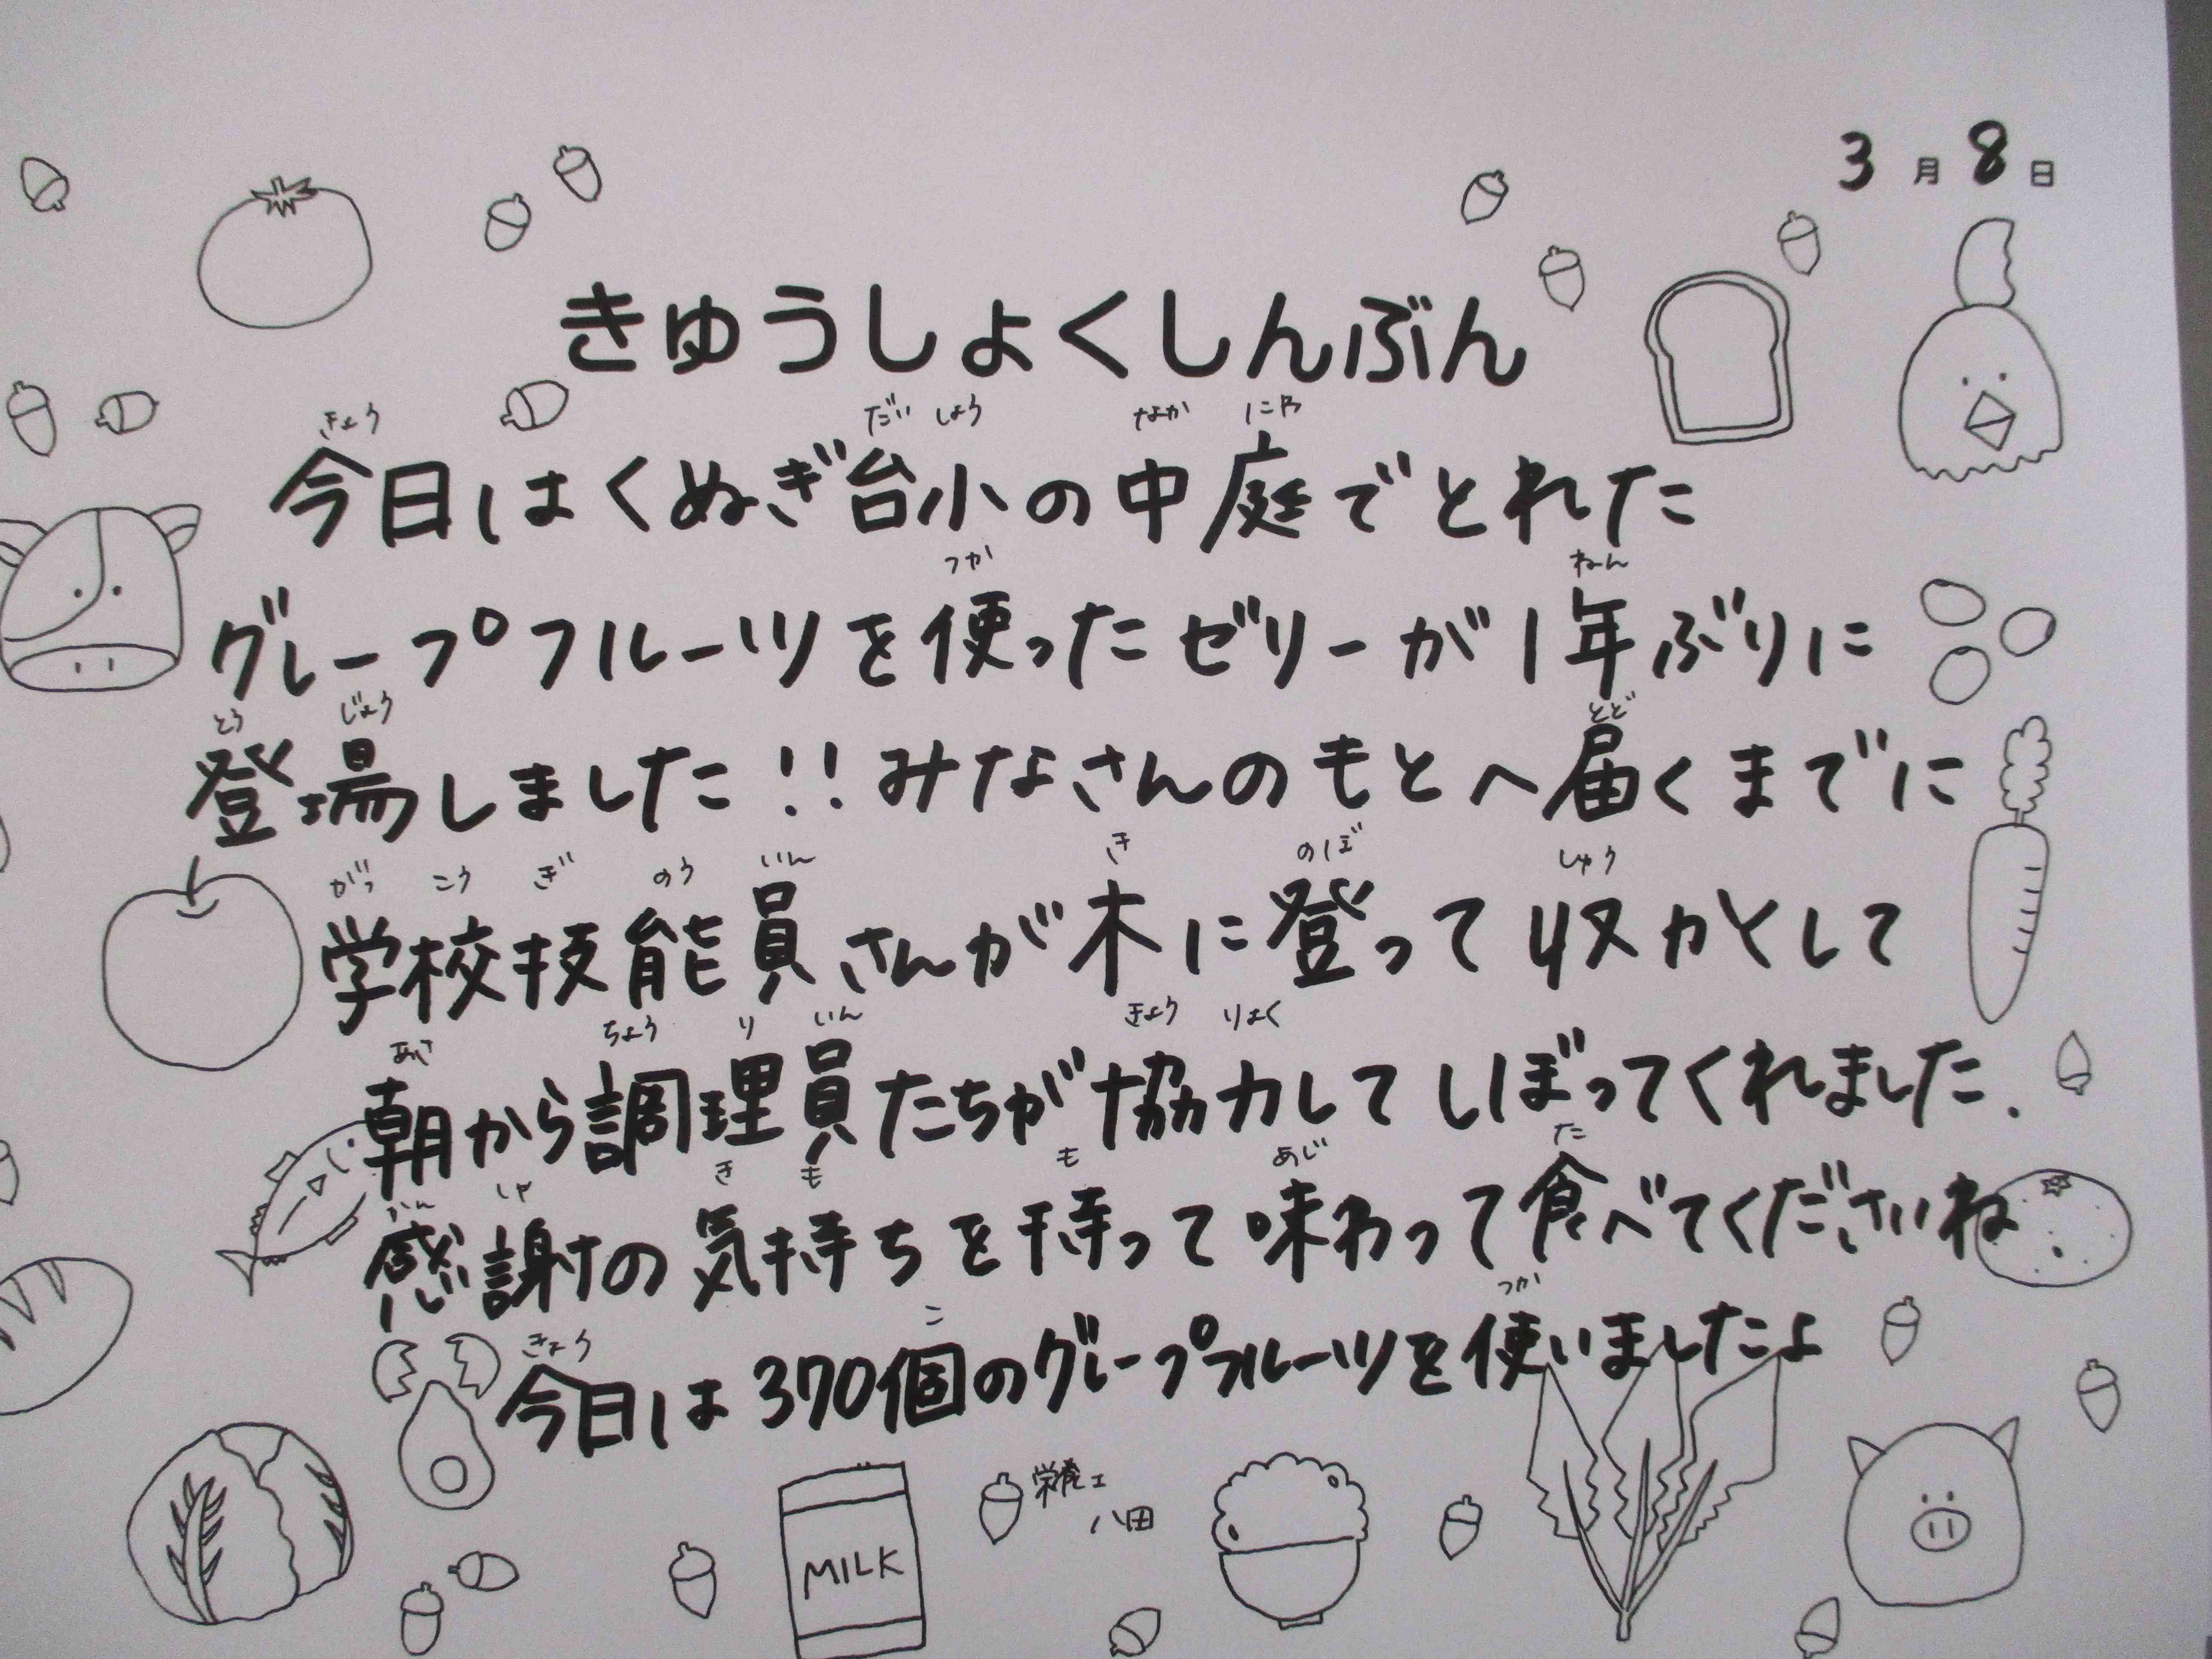 3月8日
きゅうしょくしんぶん
今日はくぬぎ台小の中庭でとれた
グレープフルーツを使ったゼリーが1年ぶりに
登場しました!!みなさんのもとへ届くまでに
学校技能員さんが木に登って収かくして
朝から調理員たちが協力してしぼってくれました.
感謝の気持ちを持って味わって食べてくださいね
今日は370個のグレープフルーツを使いましたよ
栄養士
八田
MILK